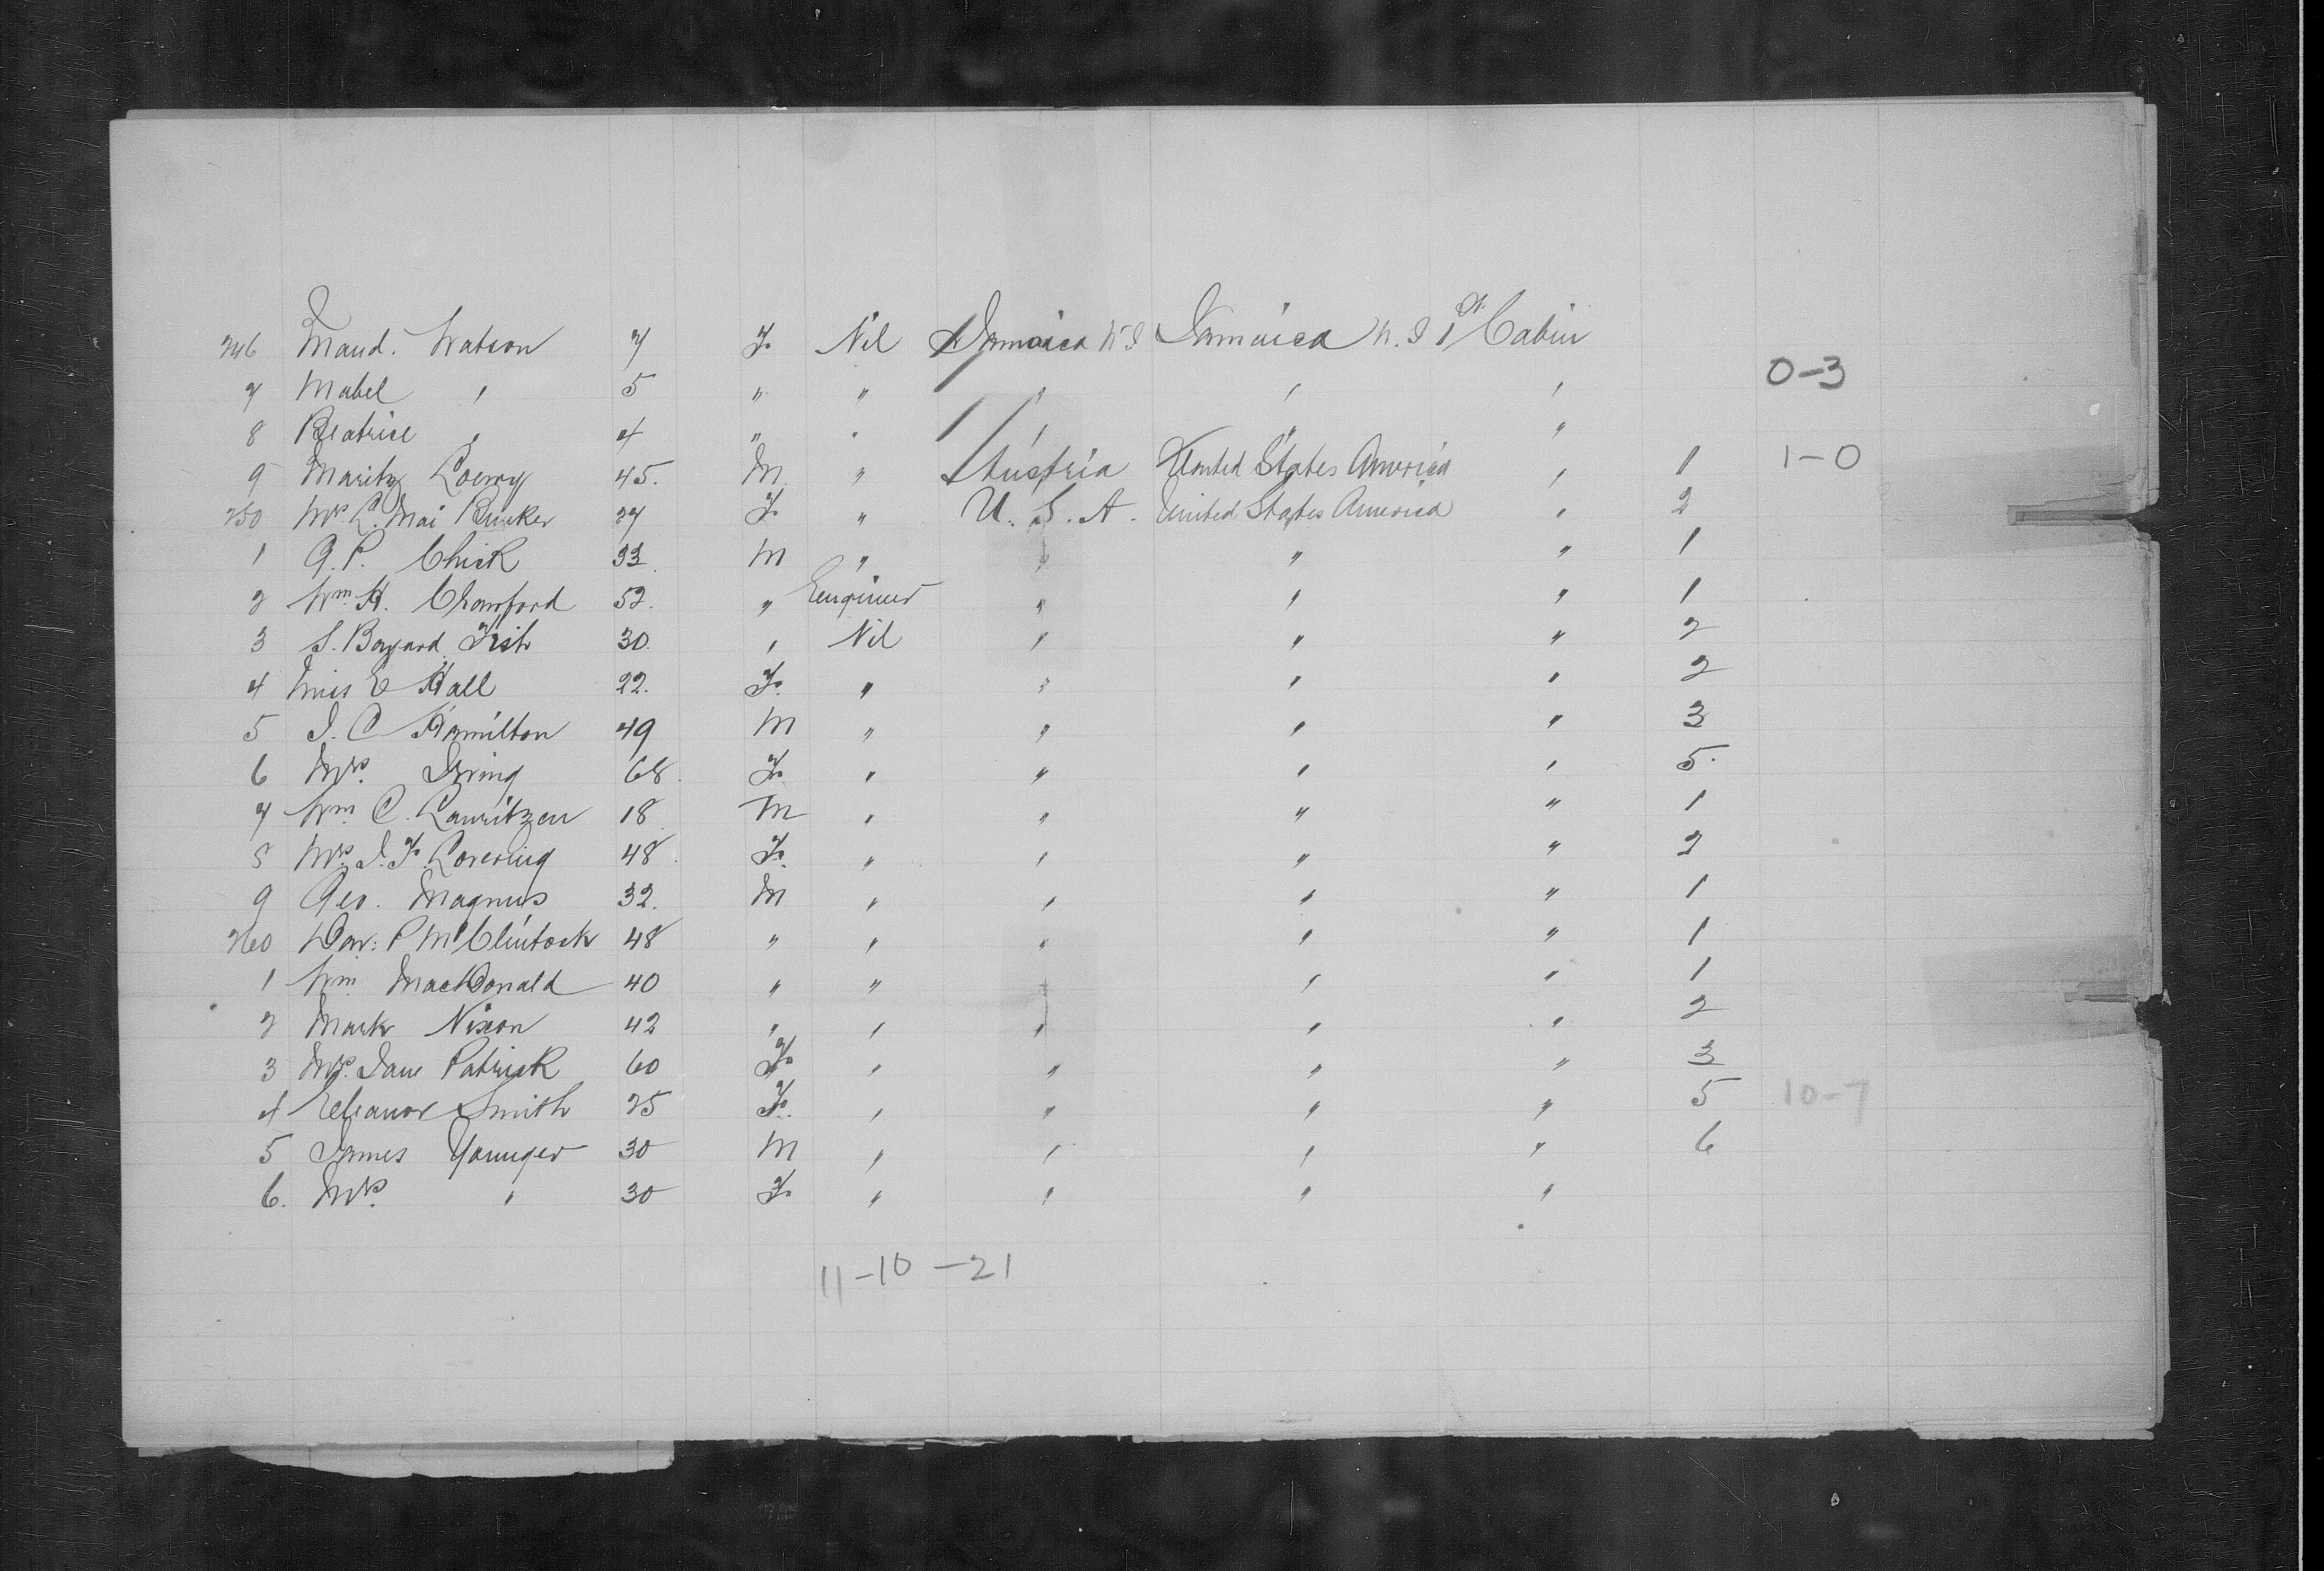 246 Maud. Watson 7 F. Nil Jamaica W I Jamaica W. I 1st Cabin
0-3
7 Mabel " 5 " " " " "
8 Beatrice " 4 " " " " "
9 Moritz Loewy 45. M. " Austria United States America " 1 1-0
250 Mrs. L. Mai Bunker 27 F. " U. S. A. United States America " 2
1 G. P. Chick 33. M " " " " 1
2 Wm H. Crawford 52. " Engineer " " " 1
3 S. Bayard Fish 30. " Nil " " " 2
4 Miss E Hall 22. F. " " " " 2
5 J. C Hamilton 49 M " " " " 3
6 Mrs. Irving 68. F. " " " " 5.
7 Wm C. Lauritzen 18. M " " " " 1
8 Mrs J. F. Lovering 48. F. " " " " 2
9 Geo. Magnus 32. M " " " " 1
260 P McClintock 48 " " " " " 1
1 Wm MacDonald 40 " " " " " 1
2 Mark Nixon 42 " " " " " 2
3 Mrs. Jane Patrick 60 F. " " " " 3
4 Eleanor Smith 25 F. " " " " 5 10-7
5 James Younger 30 M " " " " 6
6. Mrs. " 30 F. " " " "
11-10-21